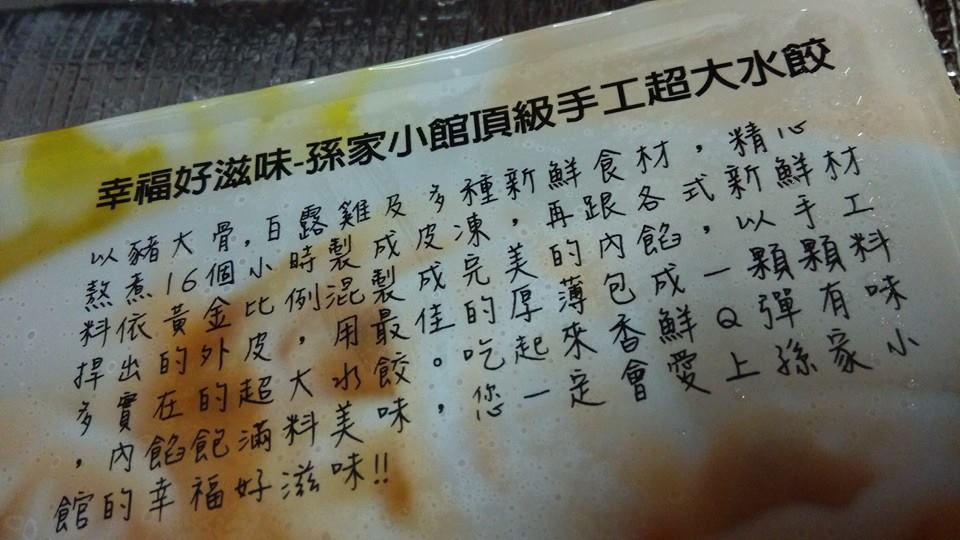 幸福好滋味-孫家小館頂級手工超大水餃
以豬大骨,白露雞及多種新鮮食材,精心
熬煮16個小時製成皮凍,再跟各式新鮮材
料依黃金比例混製成完美的內餡,以手工
捍出的外皮,用最佳的厚薄包成一顆顆料
多實在的超大水餃。吃起來香鮮Q彈有味
,內餡飽滿料美味,您一定會愛上孫家小
館的幸福好滋味!!